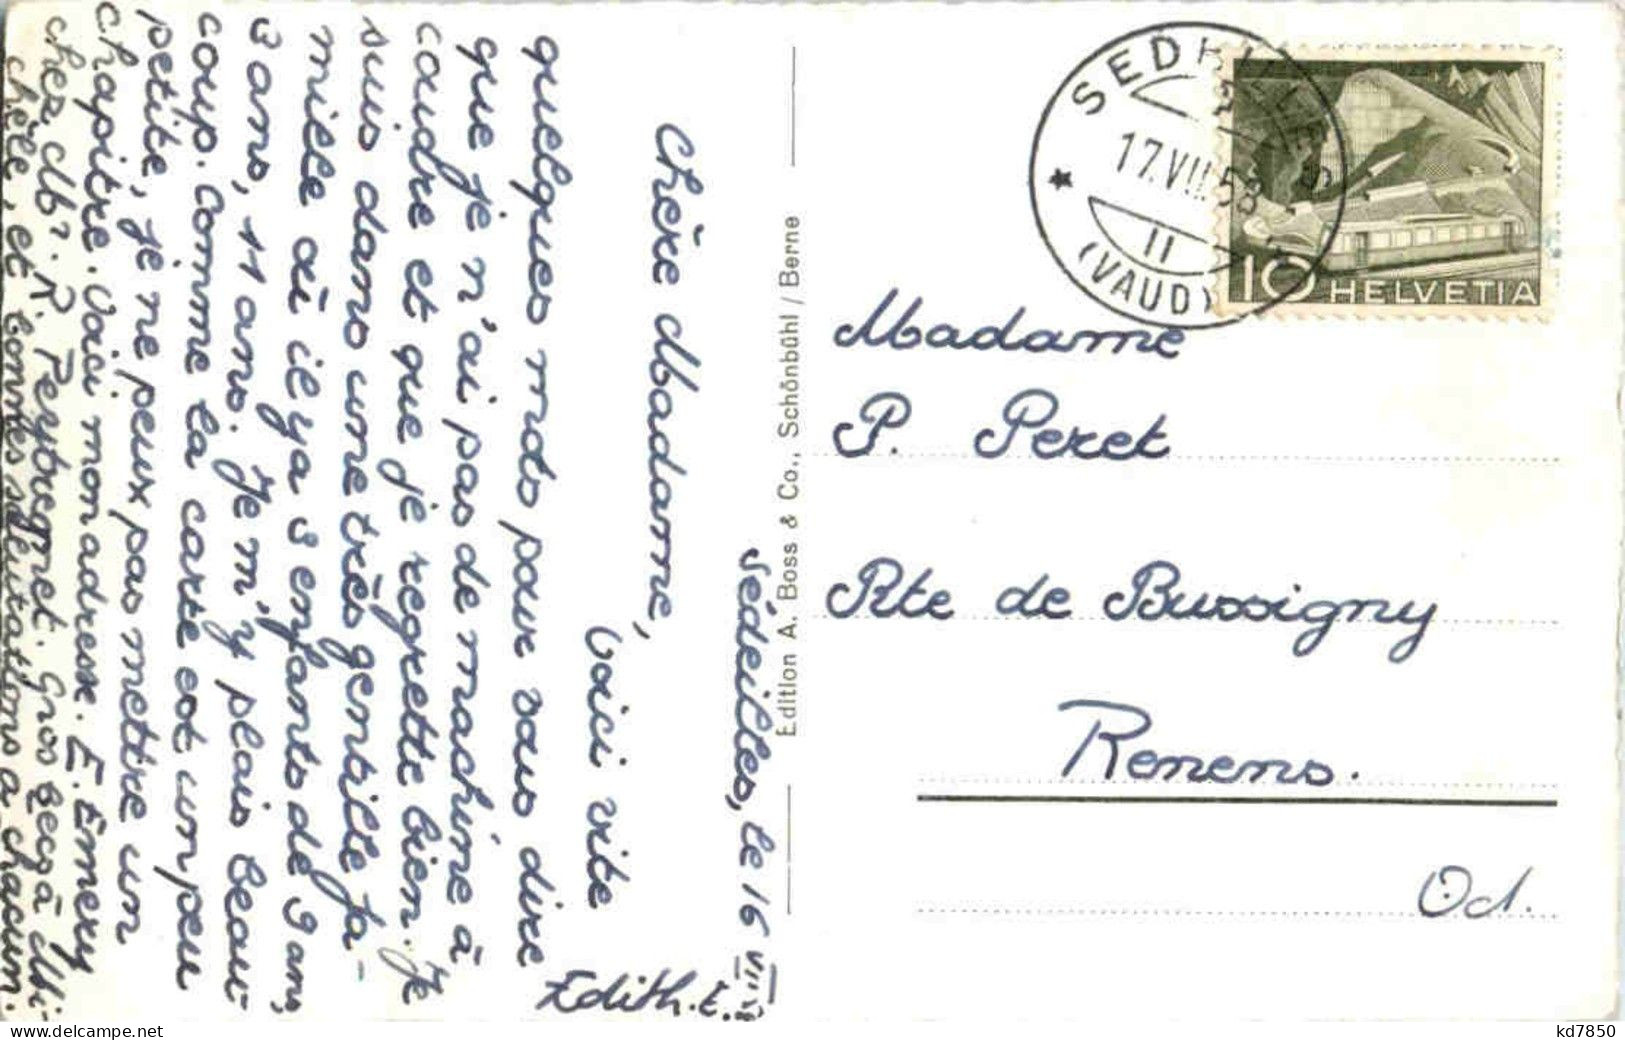 Sédeilles, le 16 VII 58
Chère Madame,
Voici vite
quelques mots pour vous dire
que je n'ai pas de machine à
coudre et que je regrette bien. Je
suis dans une très gentille fa-
mille où il y a 3 enfants de 9 ans,
3 ans, 11 ans. Je m'y plais beau-
coup. Comme la carte est un peu
petite, je ne peux pas mettre un
chapitre. Voici mon adresse. E. Emery
chez M. R. Perbregnet. Gros becs à Mi-
chèle, et bonnes salutations à chacun.
Edith. E.
Edition A. Boss & Co., Schönbühl / Berne
SEDEILLES
17.VII.58
II
(VAUD)
10 HELVETIA
Madame
P. Peret
Rte de Bussigny
Renens.
Vd.
kd7850